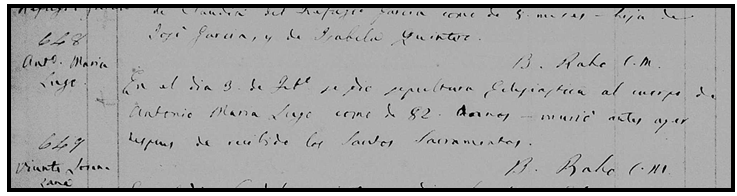 de Claudia del Refugio Garcia como de 5 meses – hija de
José Garcia, y de Isabela
B. Raho C.M.
648
Anto. Maria
Lugo.
En el dia 3. de Febo. se dio sepultura Eclesiastica al cuerpo de
Antonio Maria Lugo como de 82. annos – murió antes ayer
despues de recibido los Santos Sacramentos.
B. Raho C.M.
649